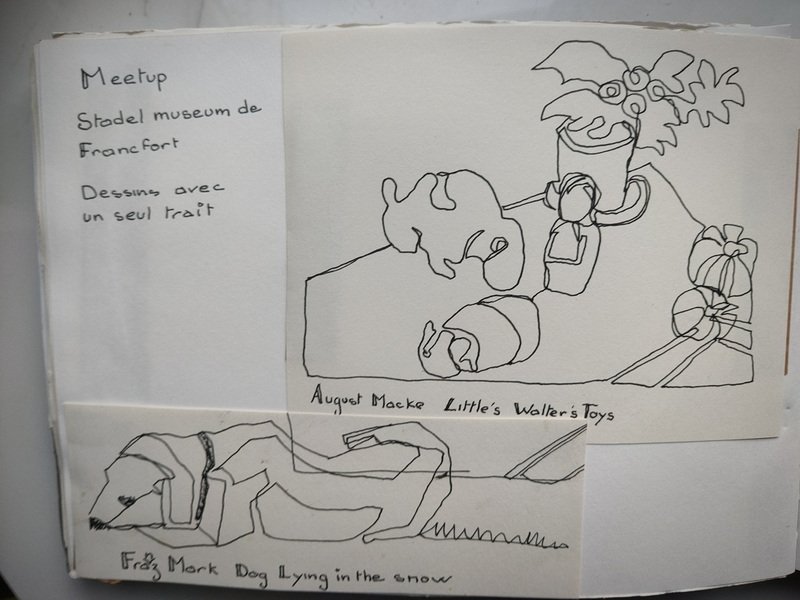 Meetup
Stadel museum de
Francfort
Dessins avec
un seul trait
August Macke Little's Walter's Toys
Franz Mark Dog Lying in the snow